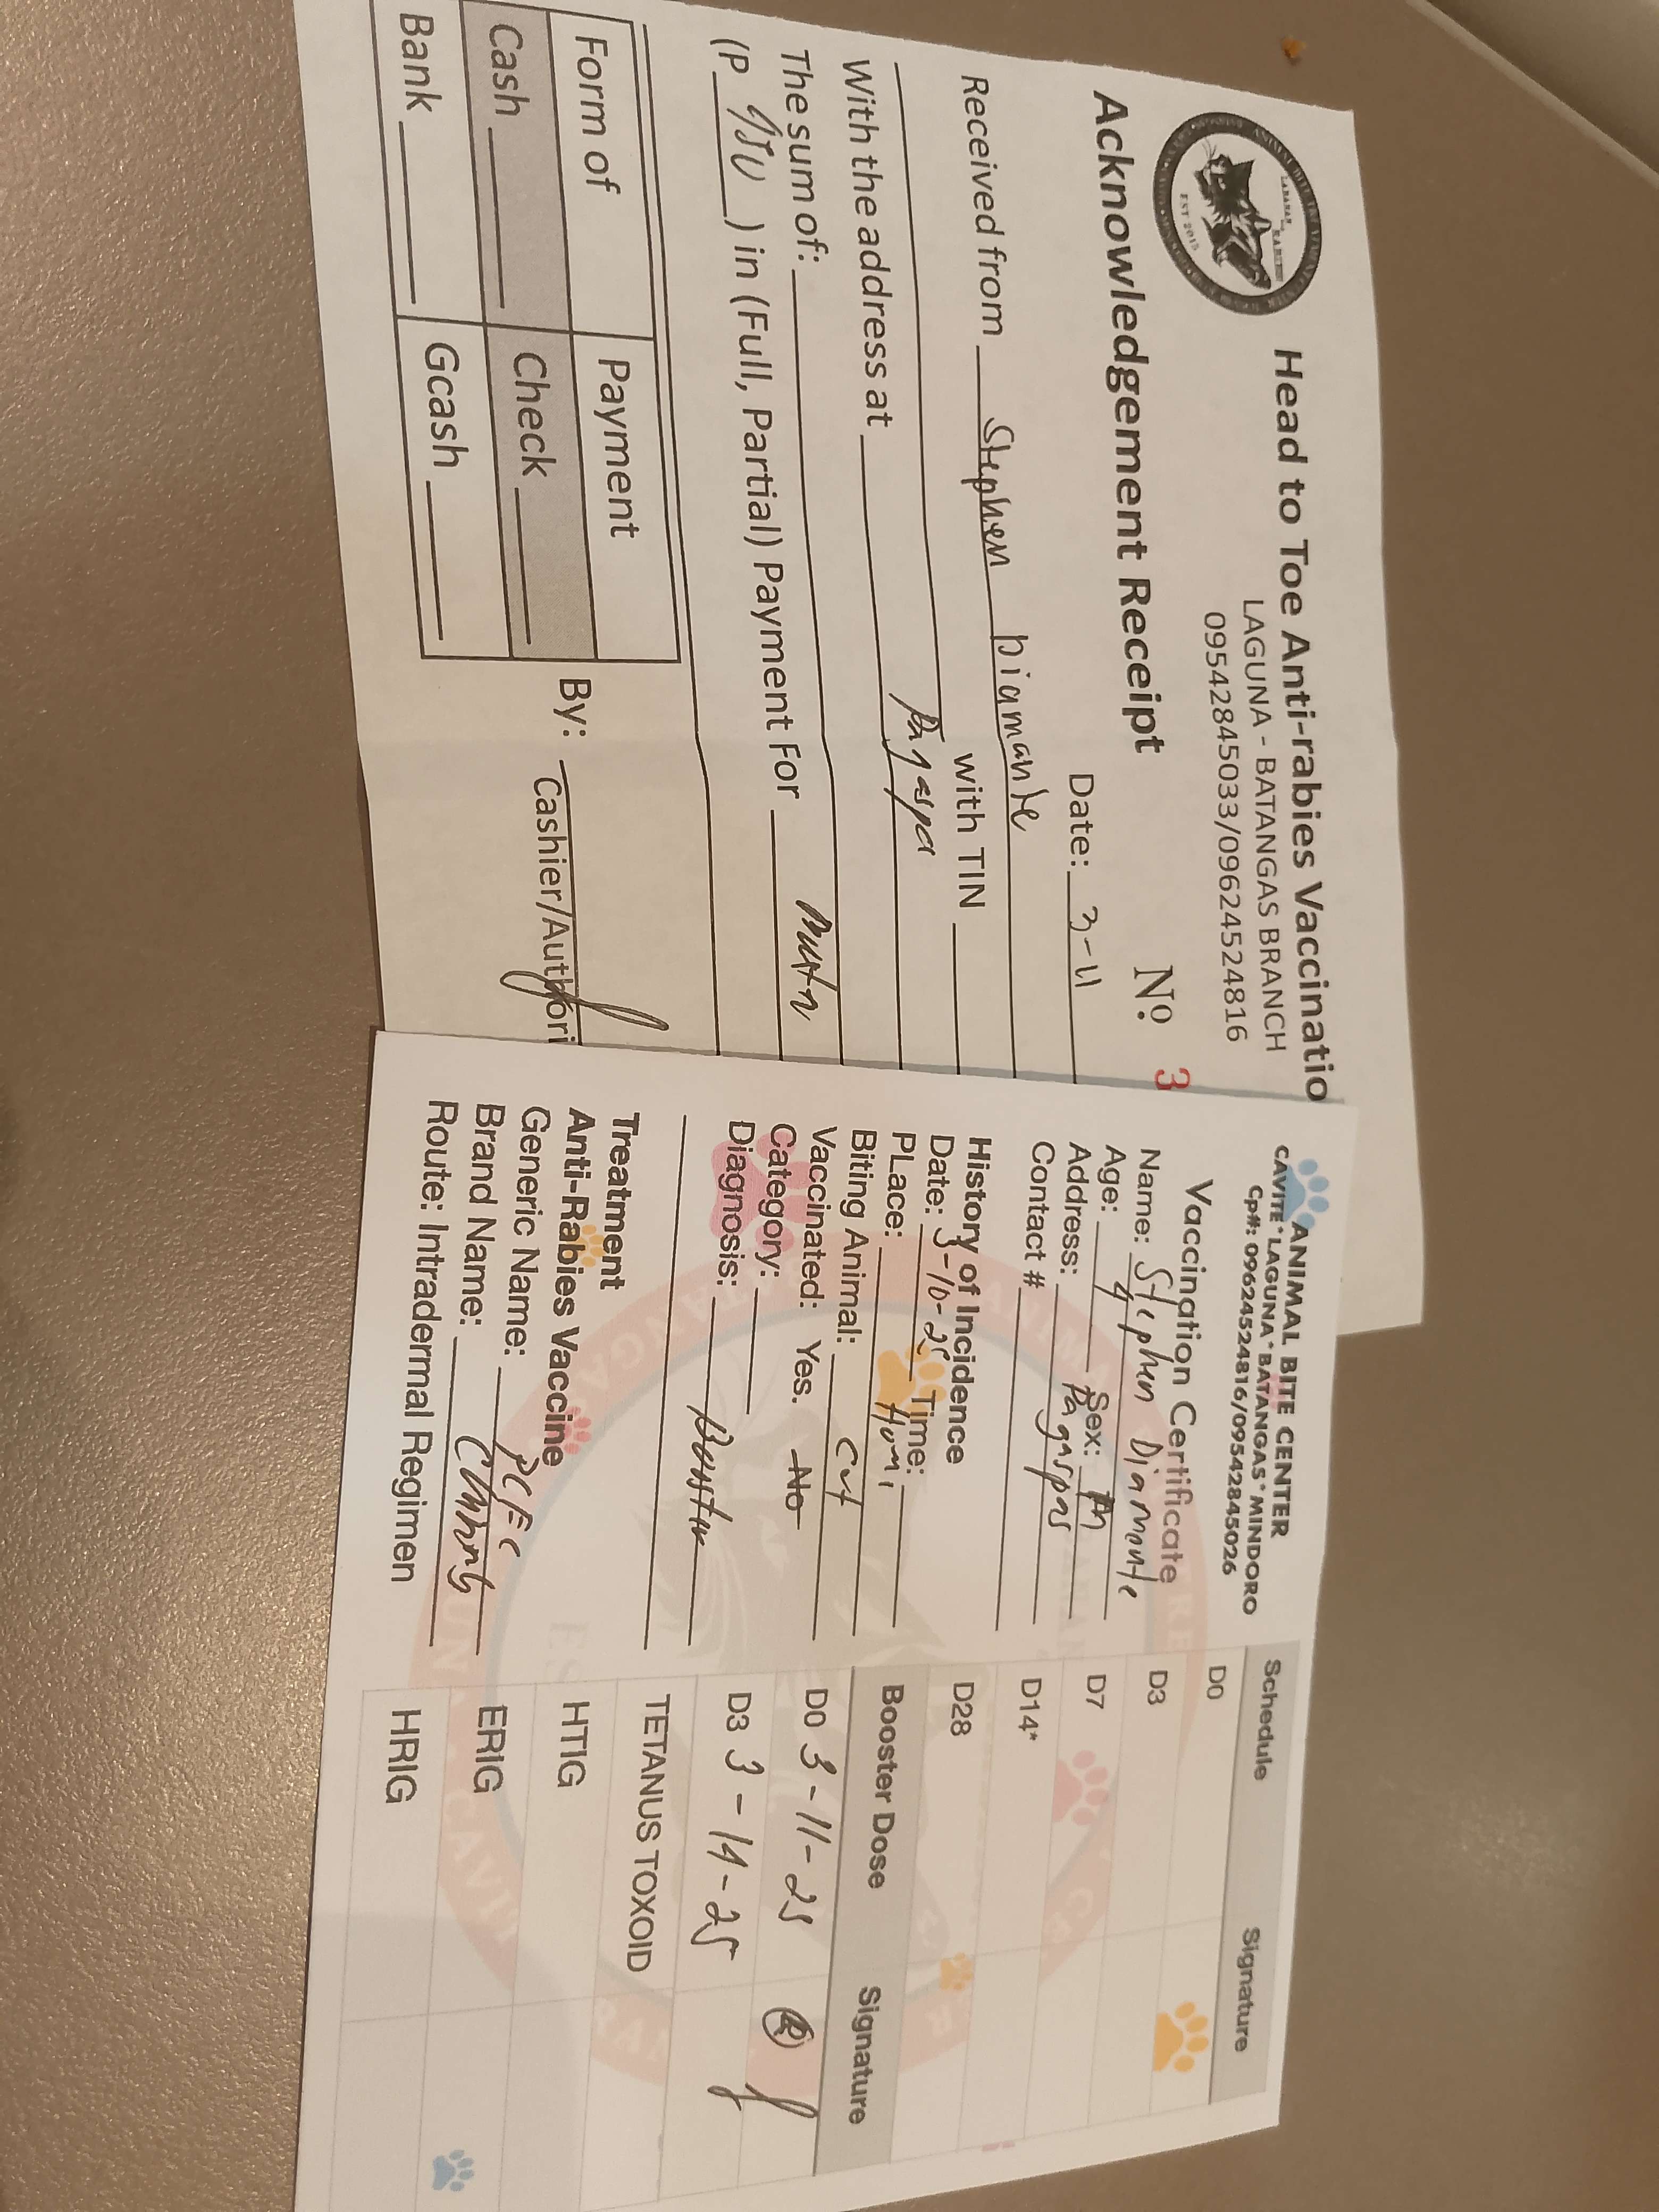 Head to Toe Anti-rabies Vaccinatio
LAGUNA - BATANGAS BRANCH
09542845033/09624524816
EST 2015
Acknowledgement Receipt
Nº 3
Date: 3-11
Received from Stephen Diamante
with TIN
With the address at Pagaspa
The sum of:
(P 950) in (Full, Partial) Payment For
Form of Payment
Cash Check
Bank Gcash
By:
Cashier/Authori
ANIMAL BITE CENTER
CAVITE*LAGUNA*BATANGAS*MINDORO
Cp#: 09624524816/09542845026
Vaccination Certificate
Name: Stephen Diamante
Age: 9 Sex: M
Address: Pagaspas
Contact #
History of Incidence
Date: 3-10-25 Time:
PLace: Home
Biting Animal: Cat
Vaccinated: Yes. No
Category:
Diagnosis:
Treatment
Anti-Rabies Vaccine
Generic Name: PCEC
Brand Name:
Route: Intradermal Regimen
Schedule Signature
D0
D3
D7
D14*
D28
Booster Dose Signature
D0 3-11-25
D3 3-14-25
TETANUS TOXOID
HTIG
ERIG
HRIG